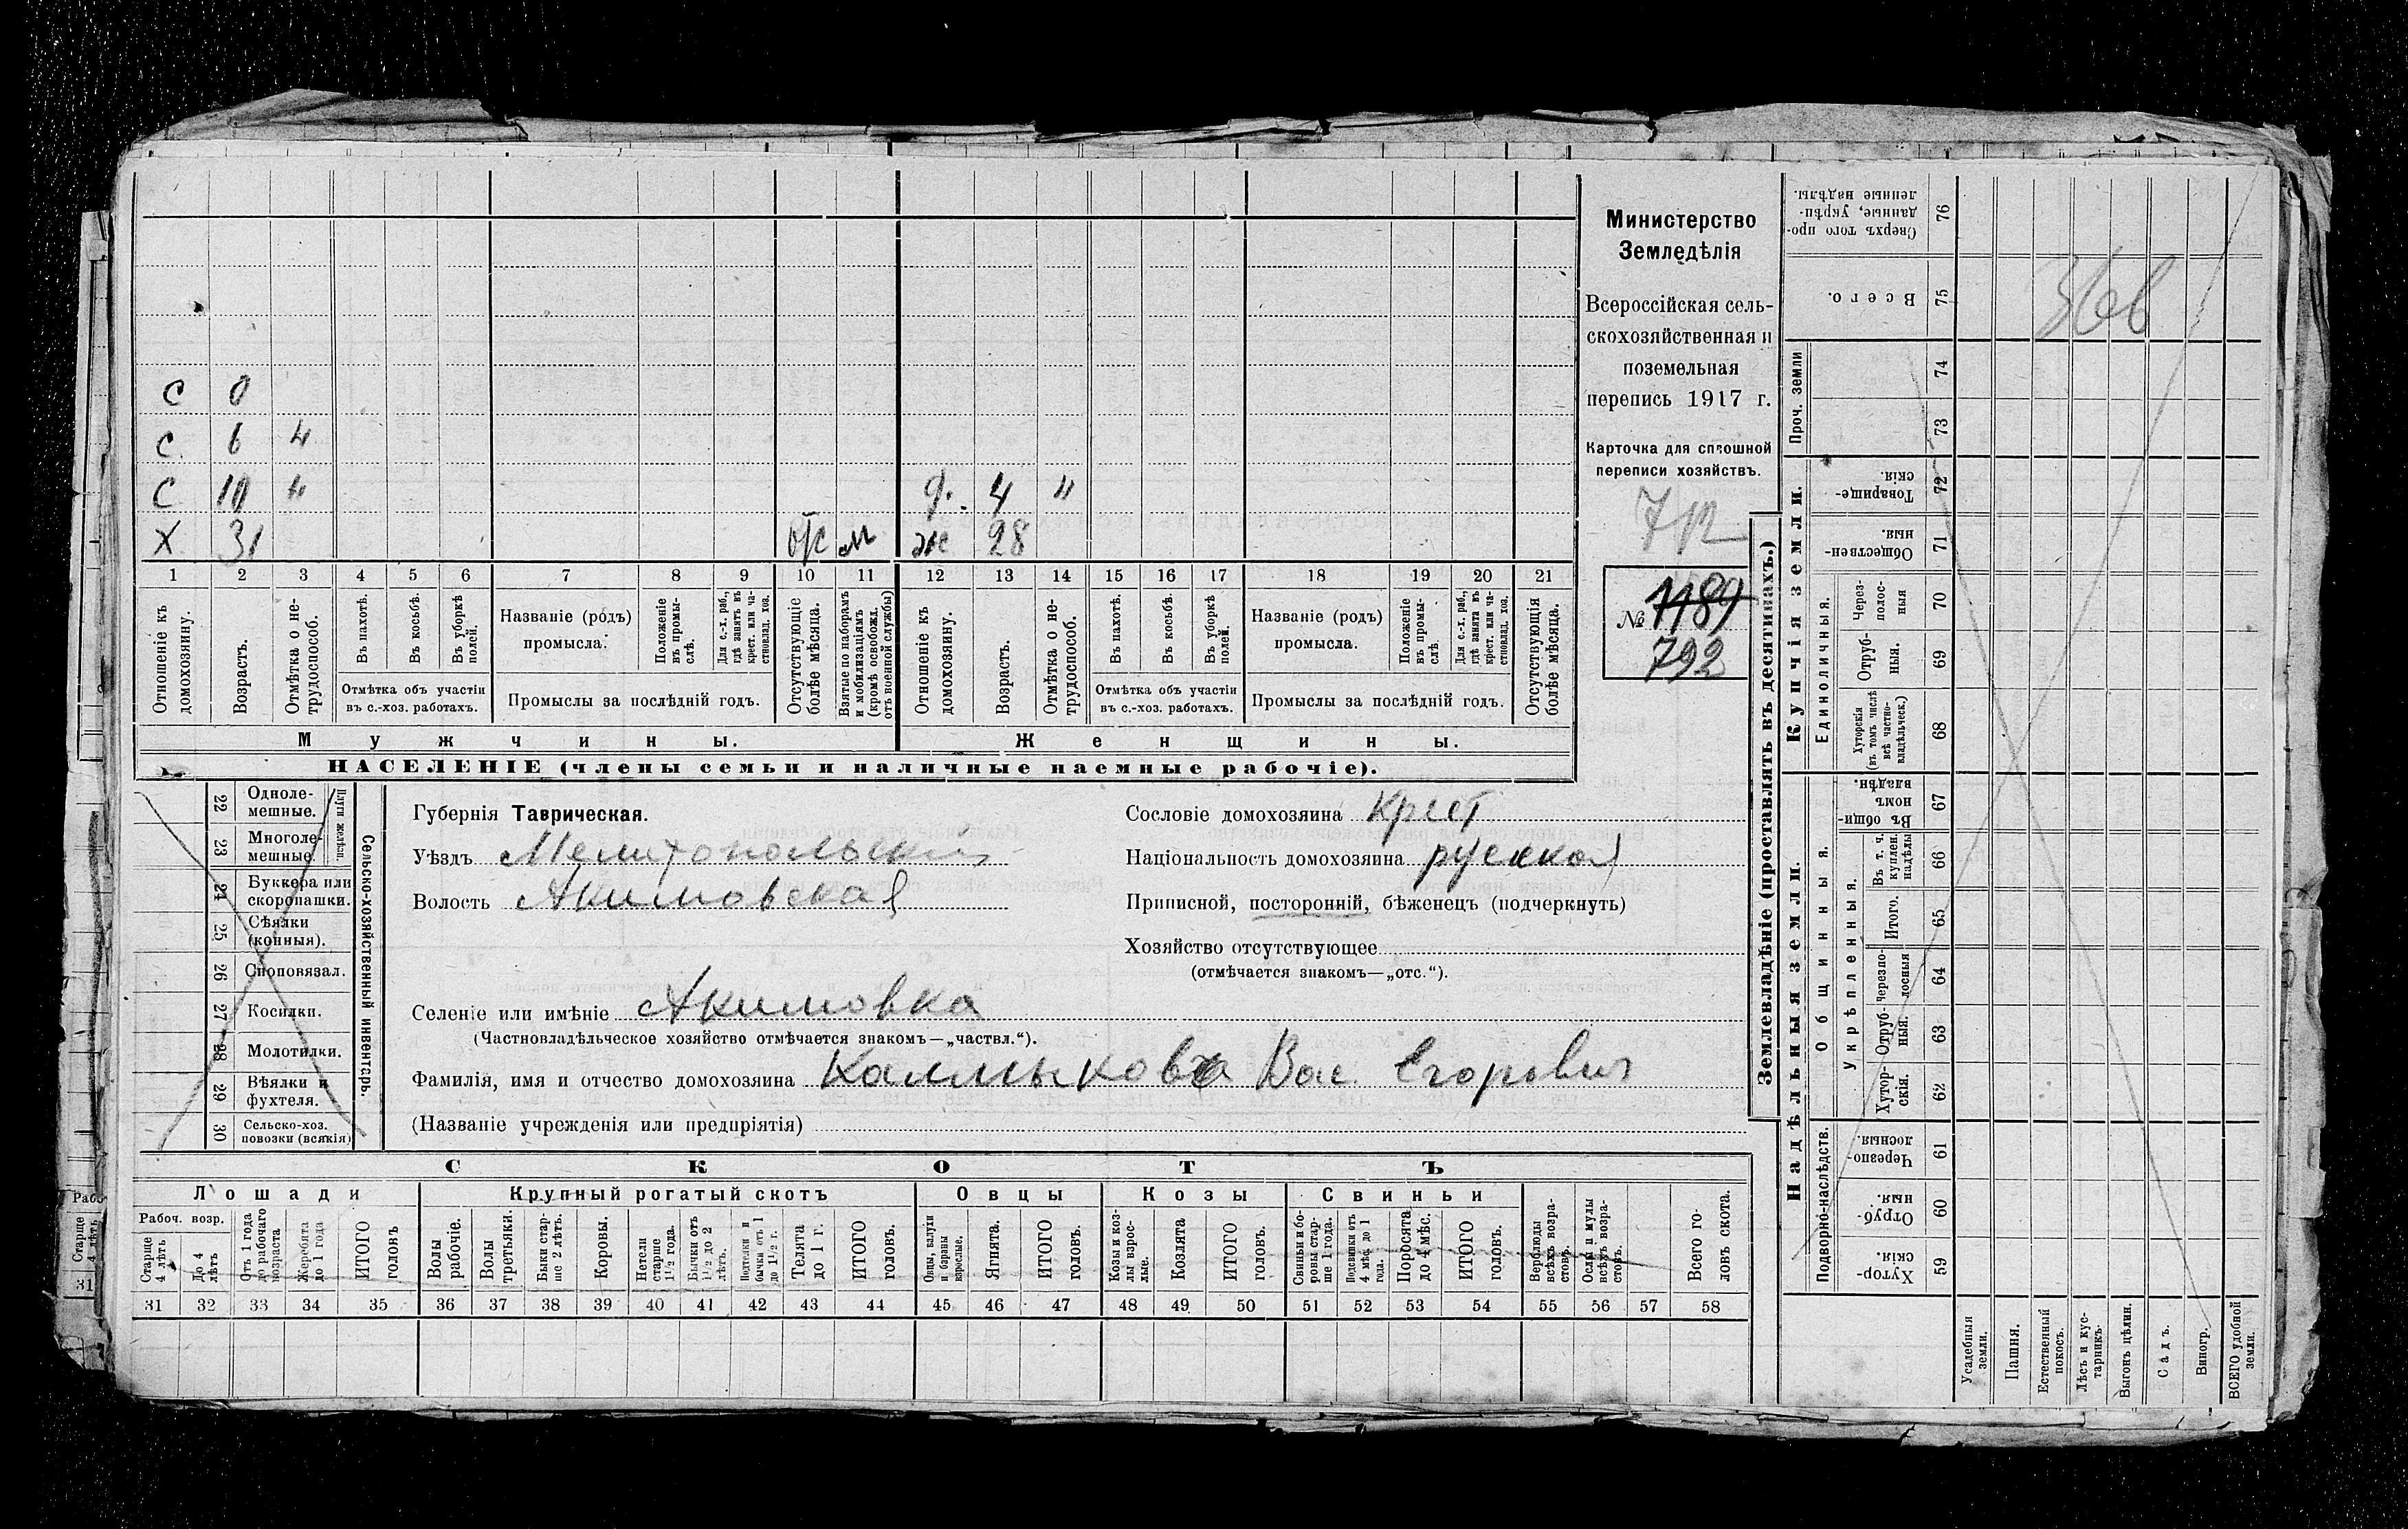 С 0
С. 6 "
С 10 " д. 4 "
Х 31 отс м ж 28
1 2 3 4 5 6 7 8 9 10 11 12 13 14 15 16 17 18 19 20 21
Отношеніе къ домохозяину.
Возрастъ.
Отмѣтка о не-трудоспособ.
Въ пахотѣ.
Въ косьбѣ.
Въ уборкѣ полей.
Отмѣтка объ участіи въ с.-хоз. работахъ.
Названіе (родъ) промысла.
Положеніе въ промы-слѣ.
Для с.-х. раб., гдѣ занятъ въ крест. или ча-стновлад. хоз.
Промыслы за послѣдній годъ.
Отсутствующіе болѣе мѣсяца.
Взятые по наборамъ и мобилизаціямъ (кромѣ освобожд. отъ военной службы)
Отношеніе къ домохозяину.
Возрастъ.
Отмѣтка о не-трудоспособ.
Въ пахотѣ.
Въ косьбѣ.
Въ уборкѣ полей.
Отмѣтка объ участіи въ с.-хоз. работахъ.
Названіе (родъ) промысла.
Положеніе въ промы-слѣ
Для с.-х. раб., гдѣ занята въ крест. или ча-стновлад. хоз.
Промыслы за послѣдній годъ.
Отсутствующія болѣе мѣсяца.
Мужчины. Женщины.
НАСЕЛЕНІЕ (члены семьи и наличные наемные рабочіе).
Министерство
Земледѣлія
Всероссійская сель-
скохозяйственная и
поземельная
перепись 1917 г.
Карточка для сплошной
переписи хозяйствъ.
712
№ 1189
792
22 Одноле-мешные.
23 Многоле-мешные.
Плуги желѣзн.
24 Буккера или скоропашки.
25 Сѣялки (конныя).
26 Споповязал.
27 Косилки.
28 Молотилки.
29 Вѣялки и фухтеля.
30 Сельско-хоз. повозки (всякія)
Сельско-хозяйственный инвентарь.
Губернія Таврическая.
Уѣздъ Мелитопольскій
Волость Акимовская
Сословіе домохозяина Крест
Національность домохозяина русская
Приписной, посторонній, бѣженецъ (подчеркнуть)
Хозяйство отсутствующее
(отмѣчается знакомъ—„отс.“).
Селеніе или имѣніе Акимовка
(Частновладѣльческое хозяйство отмѣчается знакомъ—„частвл.“).
Фамилія, имя и отчество домохозяина Калмыкова Вас. Егорович
(Названіе учрежденія или предпріятія)
СКОТЪ
Лошади Крупный рогатый скотъ Овцы Козы Свиньи
Рабоч. возр.
Старше 4 лѣтъ
До 4 лѣтъ
Отъ 1 года до рабочаго возраста
Жеребята до 1 года
ИТОГО головъ
Волы рабочіе.
Волы третьяки.
Быки стар-ше 2 лѣтъ.
Коровы.
Нетели старше 1½ года.
Бычки отъ 1½ до 2 лѣтъ.
Подтелки и бычки отъ 1 до 1½ г.
Телята до 1 г.
ИТОГО головъ.
Овцы, валухи и бараны взрослые.
Ягнята.
ИТОГО головъ.
Козы и коз-лы взрос-лые.
Козлята
ИТОГО головъ.
Свиньи и бо-ровы стар-ше 1 года.
Подсвинки отъ 4 мѣс. до 1 года.
Поросята до 4 мѣс.
ИТОГО головъ.
Верблюды всѣхъ возра-стовъ.
Ослы и мулы всѣхъ возра-стовъ.
Всего го-ловъ скота.
31 32 33 34 35 36 37 38 39 40 41 42 43 44 45 46 47 48 49 50 51 52 53 54 55 56 57 58
Старше 4 лѣтъ
31
Землевладѣніе (проставлять въ десятинахъ.)
Купчія земли.
Надѣльныя земли.
76 Сверхъ того про-данные, укрѣп-ленные надѣлы.
75 Всего.
Проч. земли
74
73
72 Товарище-скія
71 Обществен-ныя
Единоличныя.
70 Через-полос-ныя
69 Отруб-ныя.
68 Хуторскія (въ томъ числѣ всѣ частно-владѣльческ.)
Общинныя.
67 Въ общи-номъ владѣн.
Укрѣпленныя.
66 Въ т. ч. куплен. надѣлы
65 Итого.
64 Черезпо-лосныя
63 Отруб-ныя.
62 Хутор-скія.
Подворно-наслѣдств.
61 Черезпо-лосныя.
60 Отруб-ныя.
59 Хутор-скія
Усадебныя земли.
Пашня.
Естественный покосъ.
Лѣсъ и кус-тарникъ.
Выгонъ цѣлин.
Садъ.
Виногр.
ВСЕГО удобной земли.